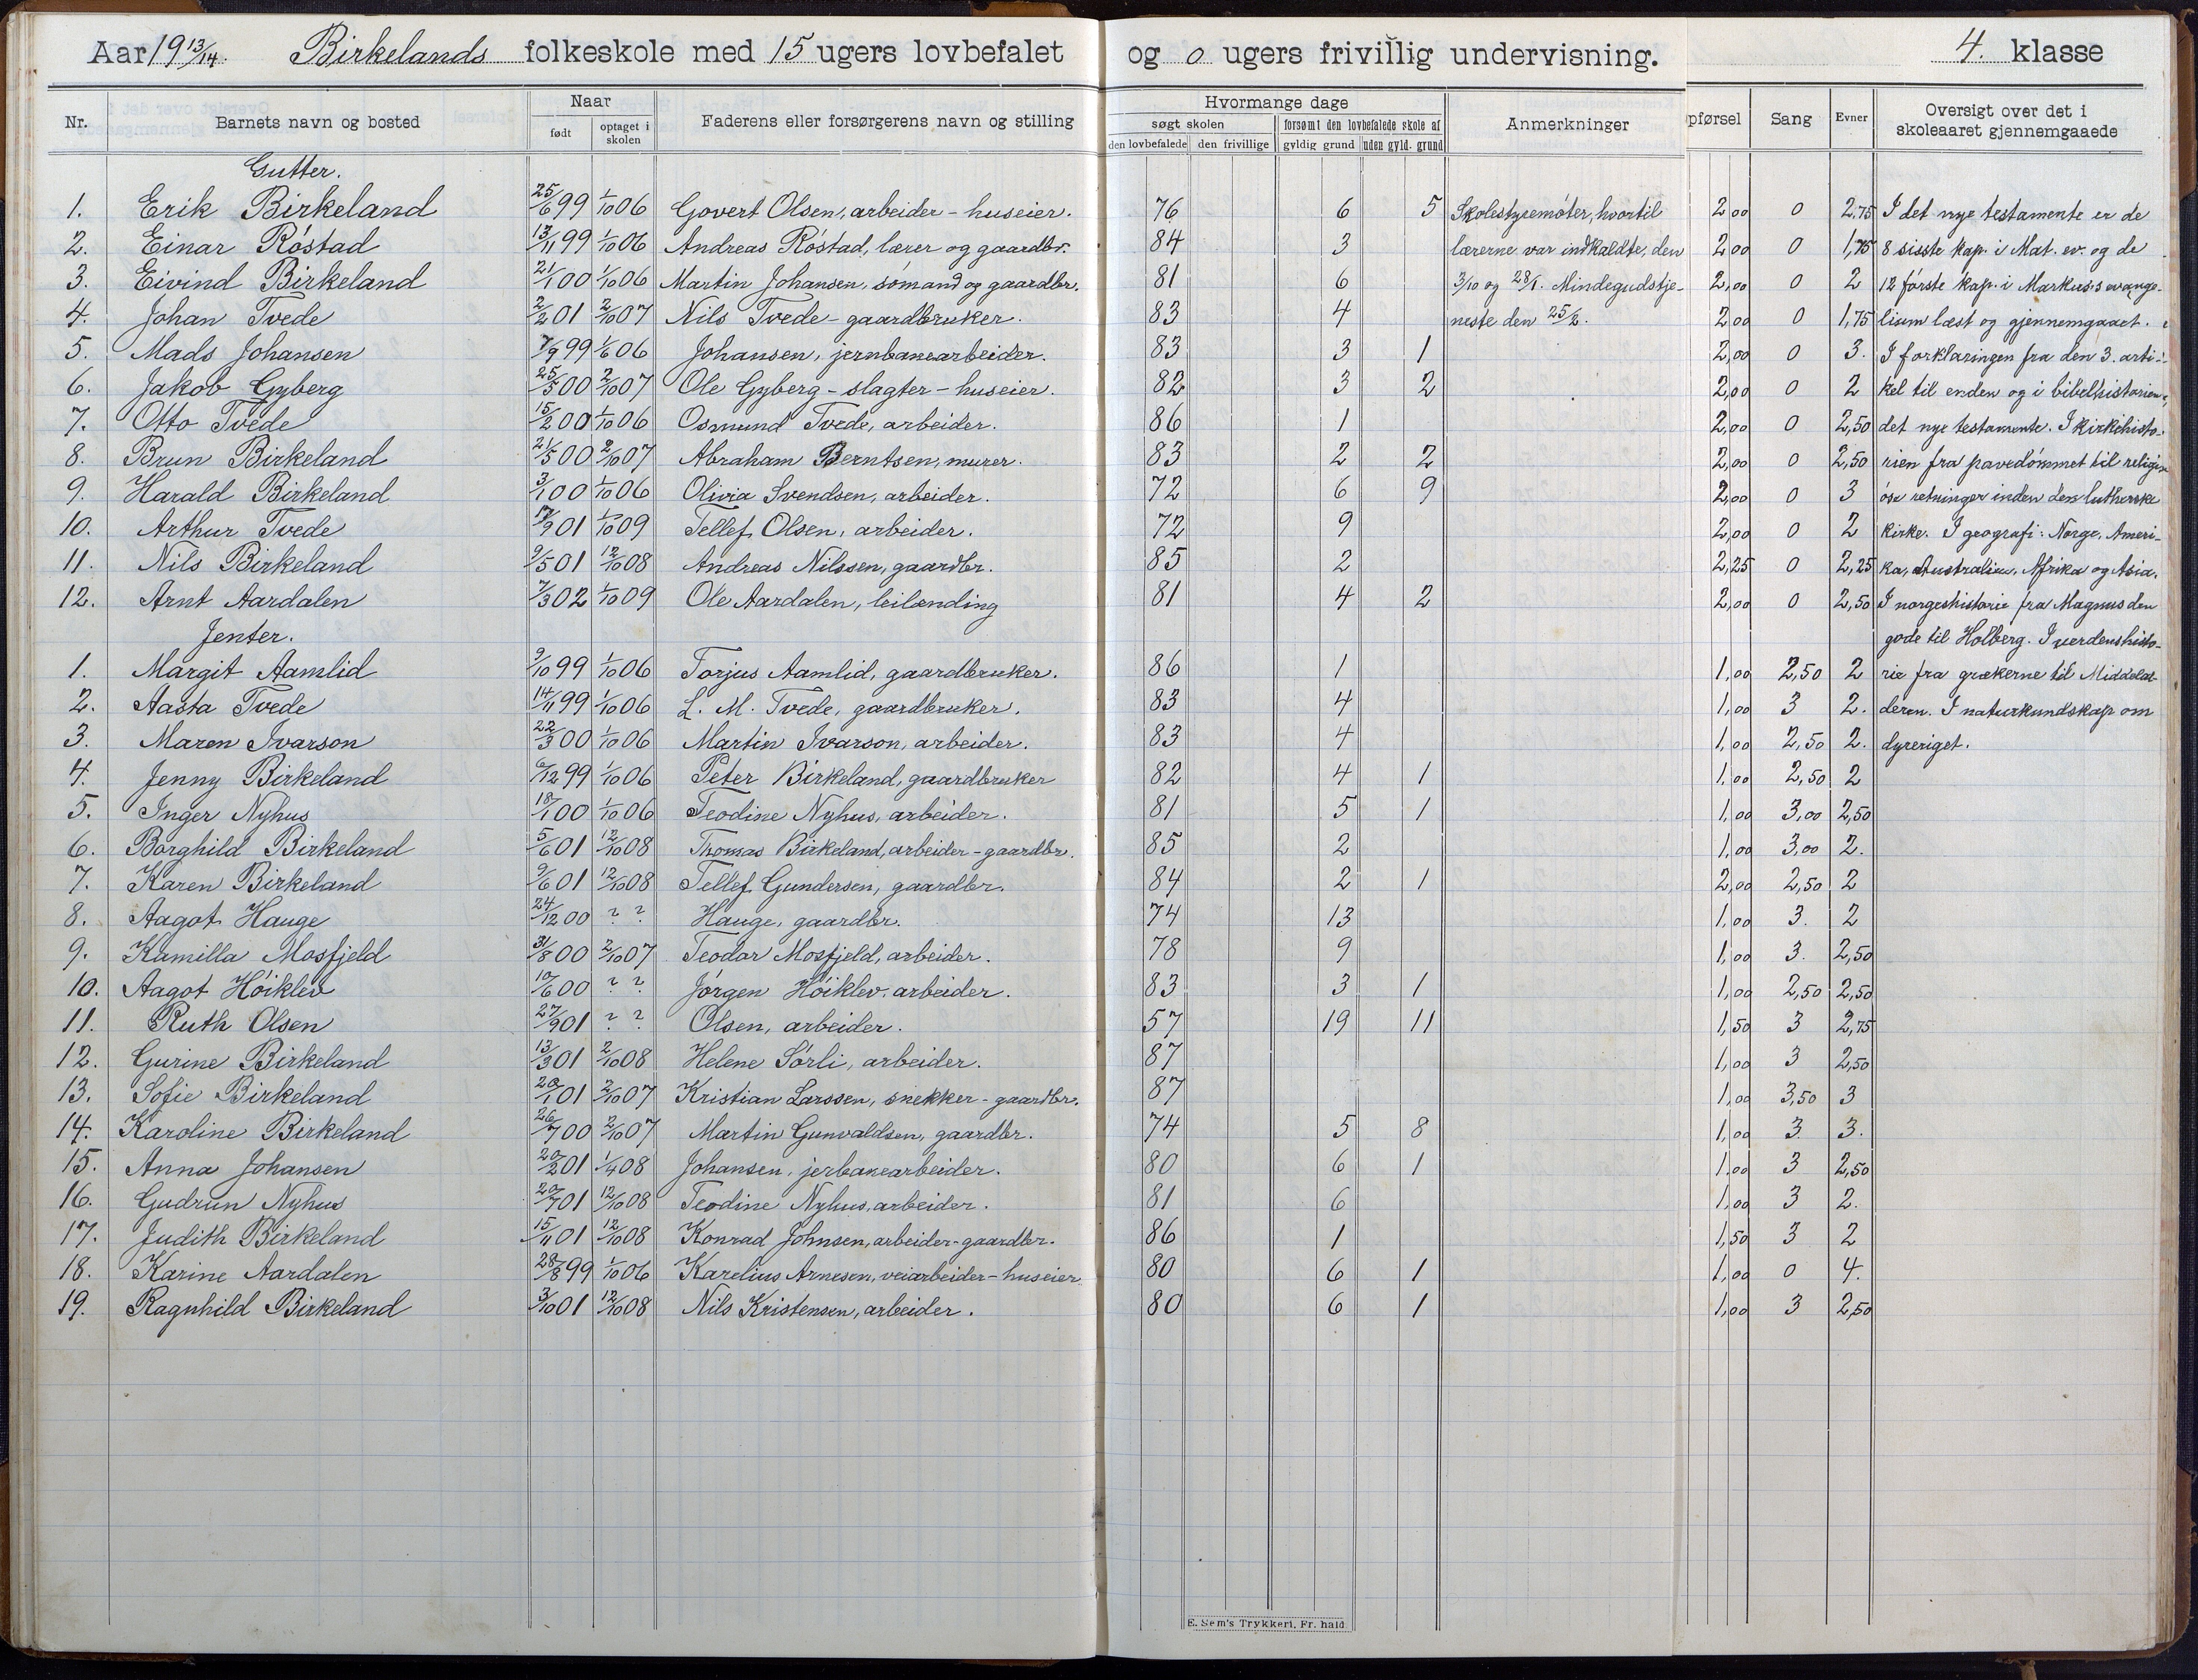 Aar 19 13/14. Birkelands folkeskole med 15 ugers lovbefalet og 0 ugers frivillig undervisning. 4. klasse
Nr. Barnets navn og bosted Naar født optaget i skolen Faderens eller forsørgerens navn og stilling Hvormange dage søgt skolen den lovbefalede den frivillige forsømt den lovbefalede skole af gyldig grund uden gyld. grund Anmerkninger pførsel Sang Evner Oversigt over det i skoleaaret gjennemgaaede
Gutter.
1. Erik Birkeland 25/6 99 1/10 06 Govert Olsen, arbeider - huseier. 76 6 5 Skolestyremöter, hvortil 2,00 0 2,75 I det nye testamente er de
2. Einar Röstad 13/11 99 1/10 06 Andreas Röstad, lærer og gaardbr. 84 3 lærerne var indkaldte, den 2,00 0 1,75 8 sisste kap. i Mat. ev. og de
3. Eivind Birkeland 21/1 00 1/10 06 Martin Johansen, sömand og gaardbr. 81 6 3/10 og 28/1. Mindegudstje- 2,00 0 2 12 förste kap. i Markus's evange-
4. Johan Tvede 2/2 01 2/10 07 Nils Tvede - gaardbruker. 83 4 neste den 25/2. 2,00 0 1,75 lium læst og gjennemgaaet.
5. Mads Johansen 7/9 99 1/6 06 Johansen, jernbanearbeider. 83 3 1 2,00 0 3. I forklaringen fra den 3. arti-
6. Jakob Gyberg 25/5 00 2/10 07 Ole Gyberg - slagter - huseier. 82 3 2 2,00 0 2 kel til enden og i bibelhistorien
7. Otto Tvede 15/2 00 1/10 06 Osmund Tvede, arbeider. 86 1 2,00 0 2,50 det nye testamente. I kirkehisto-
8. Brun Birkeland 21/5 00 2/10 07 Abraham Berntsen, murer. 83 2 2 2,00 0 2,50 rien fra pavedömmet til religi-
9. Harald Birkeland 3/1 00 1/10 06 Olivia Svendsen, arbeider. 72 6 9 2,00 0 3 öse retninger inden den lutherske
10. Arthur Tvede 17/9 01 1/10 09 Tellef Olsen, arbeider. 72 9 2,00 0 2 kirke. I geografi: Norge, Ameri-
11. Nils Birkeland 9/5 01 12/10 08 Andreas Nilssen, gaardbr. 85 2 2,25 0 2,25 ka, Australien, Afrika og Asia.
12. Arnt Aardalen 7/3 02 1/10 09 Ole Aardalen, leilænding 81 4 2 2,00 0 2,50 I norgeshistorie fra Magnus den
Jenter. gode til Holberg. I verdenshisto-
1. Margit Aamlid 9/10 99 1/10 06 Torjus Aamlid, gaardbruker. 86 1 1,00 2,50 2 rie fra grækerne til Middelal-
2. Aasta Tvede 14/11 99 1/10 06 L. M. Tvede, gaardbruker. 83 4 1,00 3 2. deren. I naturkundskap om
3. Maren Ivarson 22/3 00 1/10 06 Martin Ivarson, arbeider. 83 4 1,00 2,50 2. dyreriget.
4. Jenny Birkeland /12 99 1/10 06 Peter Birkeland, gaardbruker 82 4 1 1,00 2,50 2
5. Inger Nyhus 18/1 00 1/10 06 Teodine Nyhus, arbeider. 81 5 1 1,00 3,00 2,50
6. Borghild Birkeland 5/6 01 12/10 08 Thomas Birkeland, arbeider - gaardbr. 85 2 1,00 3,00 2.
7. Karen Birkeland 9/6 01 12/10 08 Tellef Gundersen, gaardbr. 84 2 1 2,00 2,50 2
8. Aagot Hauge 24/12 00 ? ? Hauge, gaardbr. 74 13 1,00 3. 2
9. Kamilla Mosfjeld 31/8 00 2/10 07 Teodor Mosfjeld, arbeider. 78 9 1,00 3. 2,50
10. Aagot Höiklev 10/6 00 ? ? Jörgen Höiklev, arbeider. 83 3 1 1,00 2,50 2,50
11. Ruth Olsen 27/9 01 ? ? Olsen, arbeider. 57 19 11 1,50 3 2,75
12. Gurine Birkeland 13/3 01 2/10 08 Helene Sörli, arbeider. 87 1,00 3 2,50
13. Sofie Birkeland 20/1 01 2/10 07 Kristian Larssen, snekker - gaardbr. 87 1,00 3,50 3
14. Karoline Birkeland 26/7 00 2/10 07 Martin Gunvaldsen, gaardbr. 74 5 8 1,00 3. 3.
15. Anna Johansen 20/2 01 1/4 08 Johansen, jerbanearbeider. 80 6 1 1,00 3 2,50
16. Gudrun Nyhus 20/7 01 12/10 08 Teodine Nyhus, arbeider. 81 6 1,00 3 2.
17. Judith Birkeland 15/11 01 12/10 08 Konrad Johnsen, arbeider - gaardbr. 86 1 1,50 3 2
18. Karine Aardalen 28/8 99 1/10 06 Karelius Arnesen, veiarbeider - huseier 80 6 1 1,00 0 4.
19. Ragnhild Birkeland 3/10 01 12/10 08 Nils Kristensen, arbeider. 80 6 1 1,00 3 2,50
E. Sem's Trykkeri, Fr. hald